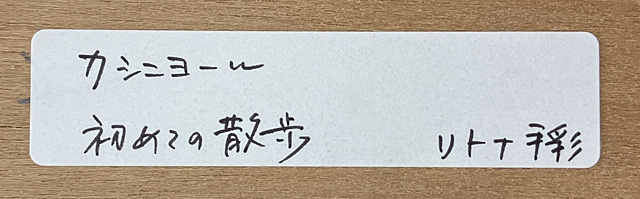 カシニヨール
初めての散歩 リトナ手彩